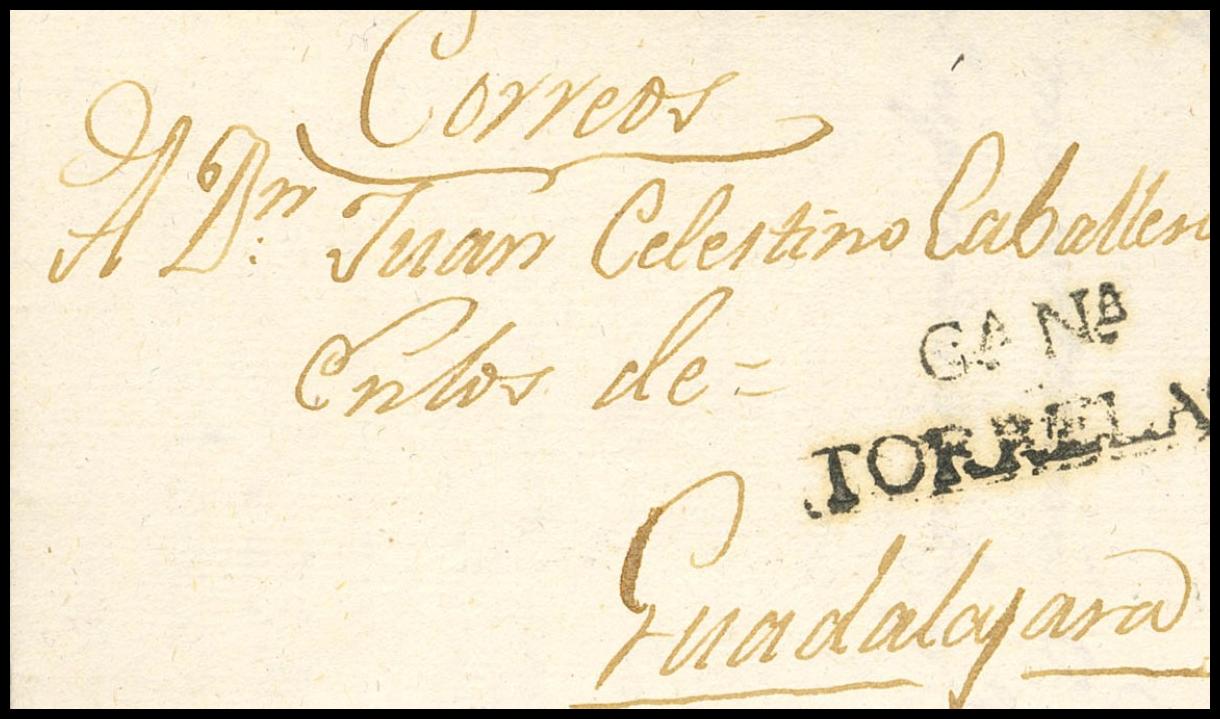 Correos
A Dn. Juan Celestino Caballero
de =
GA Nª
TORRELA
Guadalajara